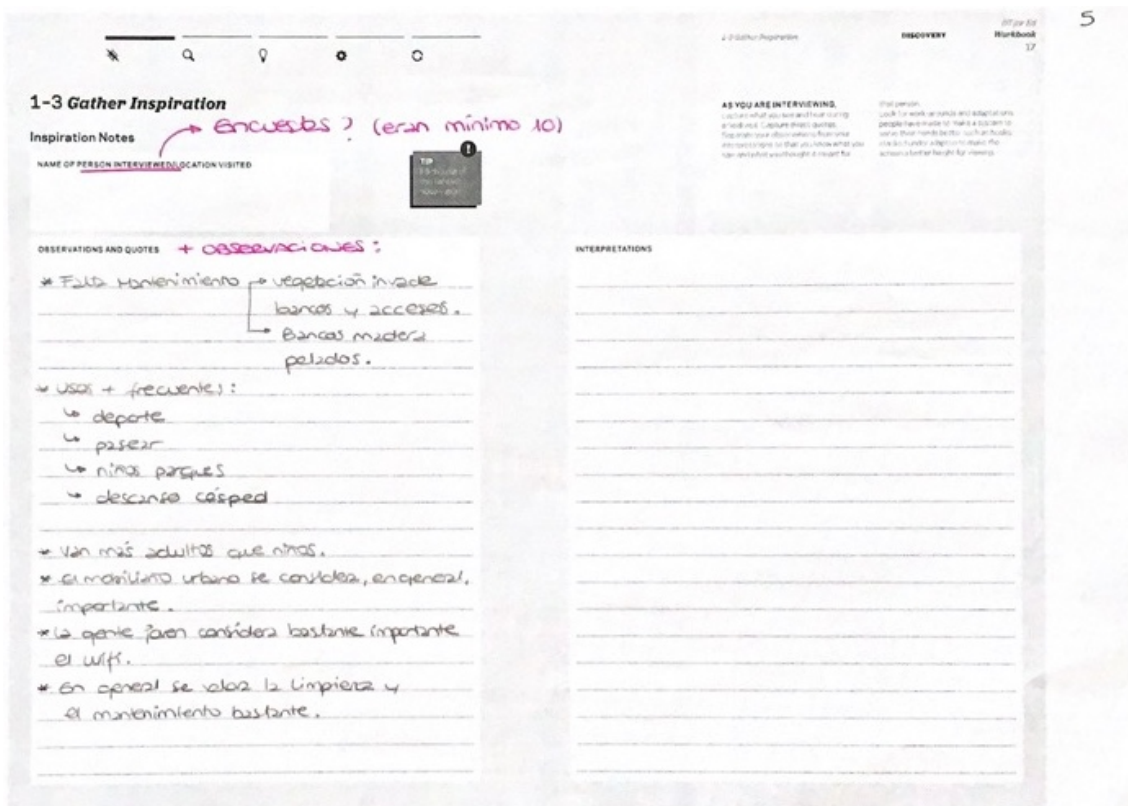 5
1-3 Gather Inspiration
DISCOVERY
Workbook
17
1-3 Gather Inspiration
Inspiration Notes
Encuestas? (eran mínimo 10)
NAME OF PERSON INTERVIEWED/LOCATION VISITED
TIP
AS YOU ARE INTERVIEWING,
that person.
OBSERVATIONS AND QUOTES + OBSERVACIONES:
* Falta Mantenimiento → vegetación invade
bancos y accesos.
→ Bancos madera
pelados.
* Usos + frecuentes:
↳ deporte
↳ pasear
↳ niños parques
↳ descanso césped
* Van más adultos que niños.
* El mobiliario urbano se considera, en general,
importante.
* La gente joven considera bastante importante
el wifi.
* En general se valora la limpieza y
el mantenimiento bastante.
INTERPRETATIONS